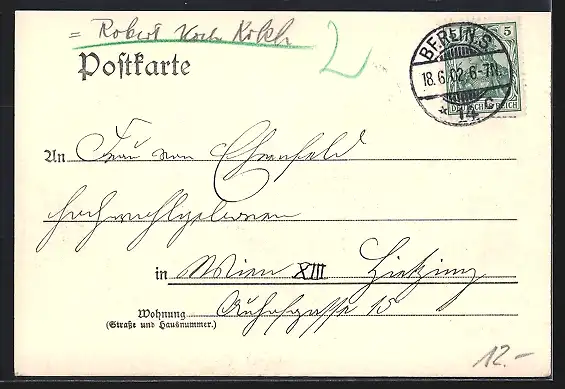 = Robert Koch Kölsch
2
Postkarte
BERLIN S.
18.6.02.6-7N.
* 14 c
5
DEUTSCHES REICH
An Frau von Ehrenfeld
hochwohlgeboren
in Wien XIII Hietzing
Wohnung 15
(Straße und Hausnummer.)
12.-